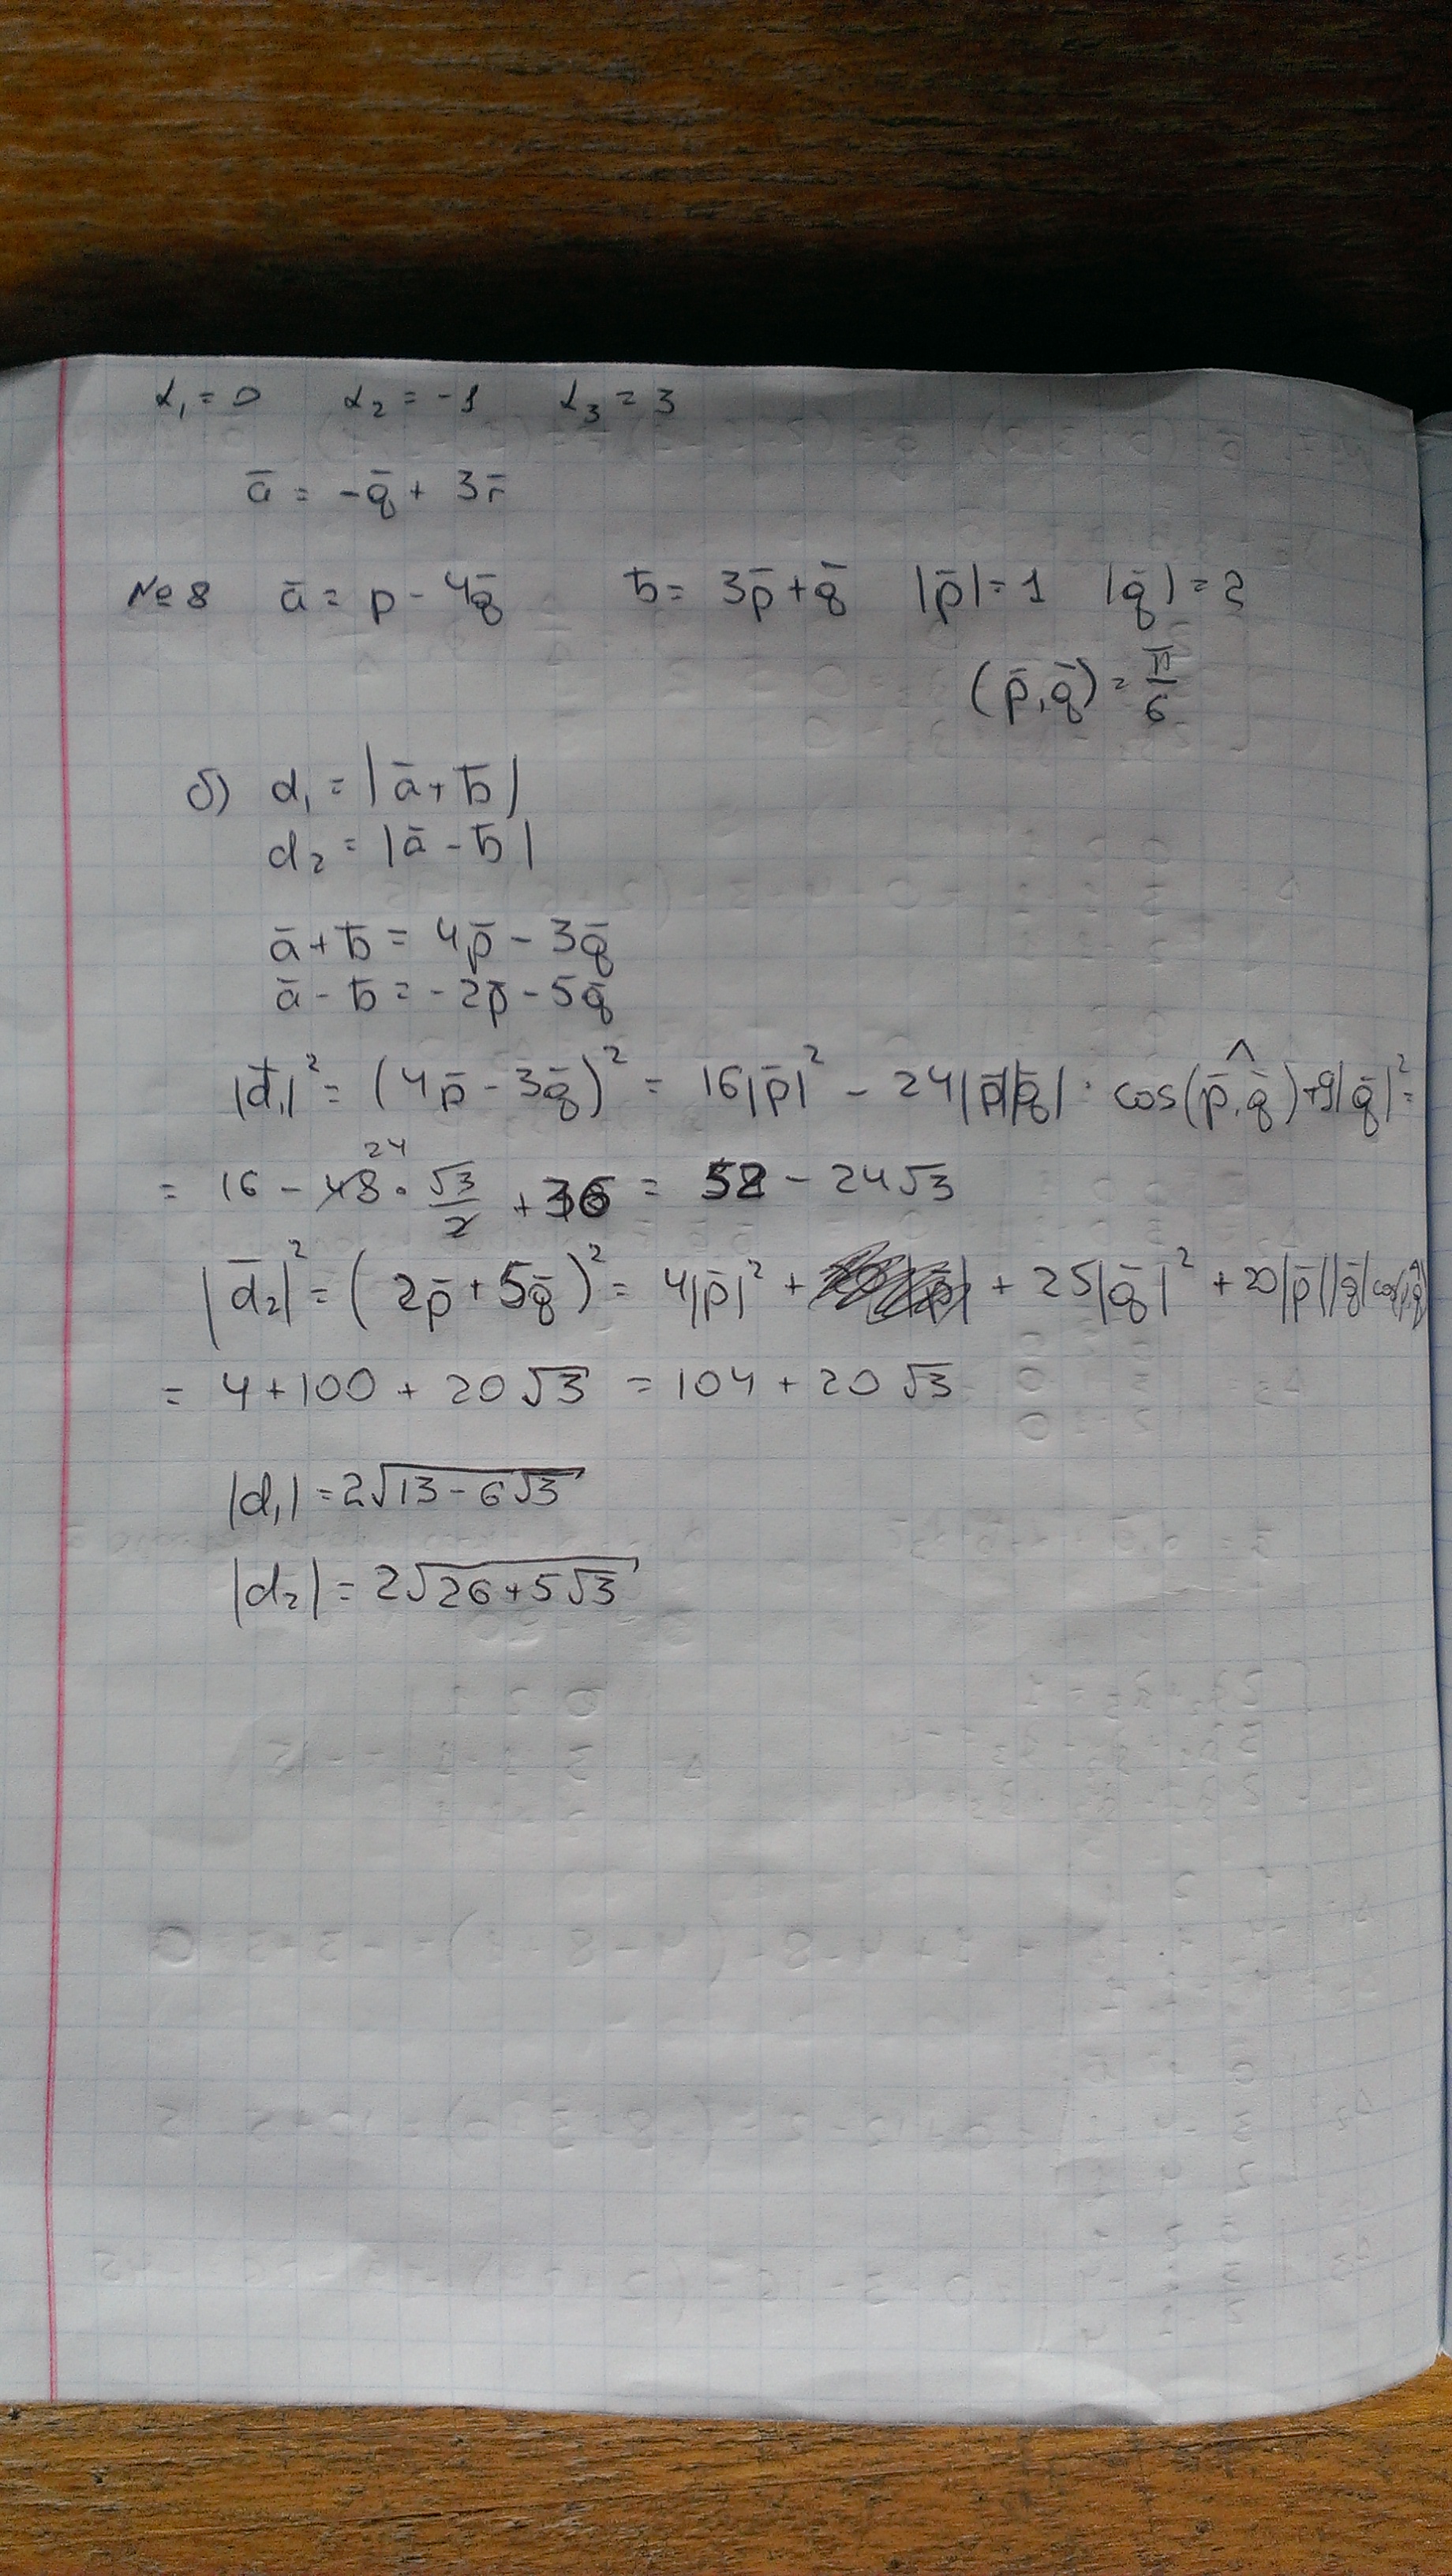 α₁ = 0 α₂ = -1 α₃ = 3
ā = -q̄ + 3r̄
№8 ā = p - 4q̄ b̄ = 3p̄ + q̄ |p̄| = 1 |q̄| = 2
(p̄, q̄) = π/6
б) d₁ = |ā + b̄|
d₂ = |ā - b̄|
ā + b̄ = 4p̄ - 3q̄
ā - b̄ = -2p̄ - 5q̄
|d̄₁|² = (4p̄ - 3q̄)² = 16|p̄|² - 24|p̄||q̄| · cos(p̄,^q̄) + 9|q̄|² =
= 16 - 48 24 · √3/2 + 36 = 52 - 24√3
|d̄₂|² = (2p̄ + 5q̄)² = 4|p̄|² + + 25|q̄|² + 20|p̄||q̄|cos(p,^q)
= 4 + 100 + 20√3 = 104 + 20√3
|d₁| = 2√(13 - 6√3)
|d₂| = 2√(26 + 5√3)